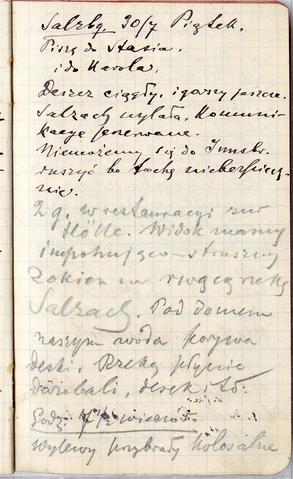 Salzbg. 30/7 Piątek.
Piszę do Stasia.
i do Karola.
Deszcz ciągły, i gorszy jeszcze.
Salzach wylała. Komuni-
kacye przerwane.
Niemożemy się do Innsbr.
ruszyć bo trochę niebezpiecz-
nie.
2 g. w restauracyi zur
Hölle. Widok mamy
imponująco-straszny
z okien na rwącą rzekę
Salzach. Pod domem
naszym woda porywa
deski. Rzeką płynie
drzewa, desek i t.d.
Godz. 7 1/2 wieczór.
wylewy przybrały kolosalne